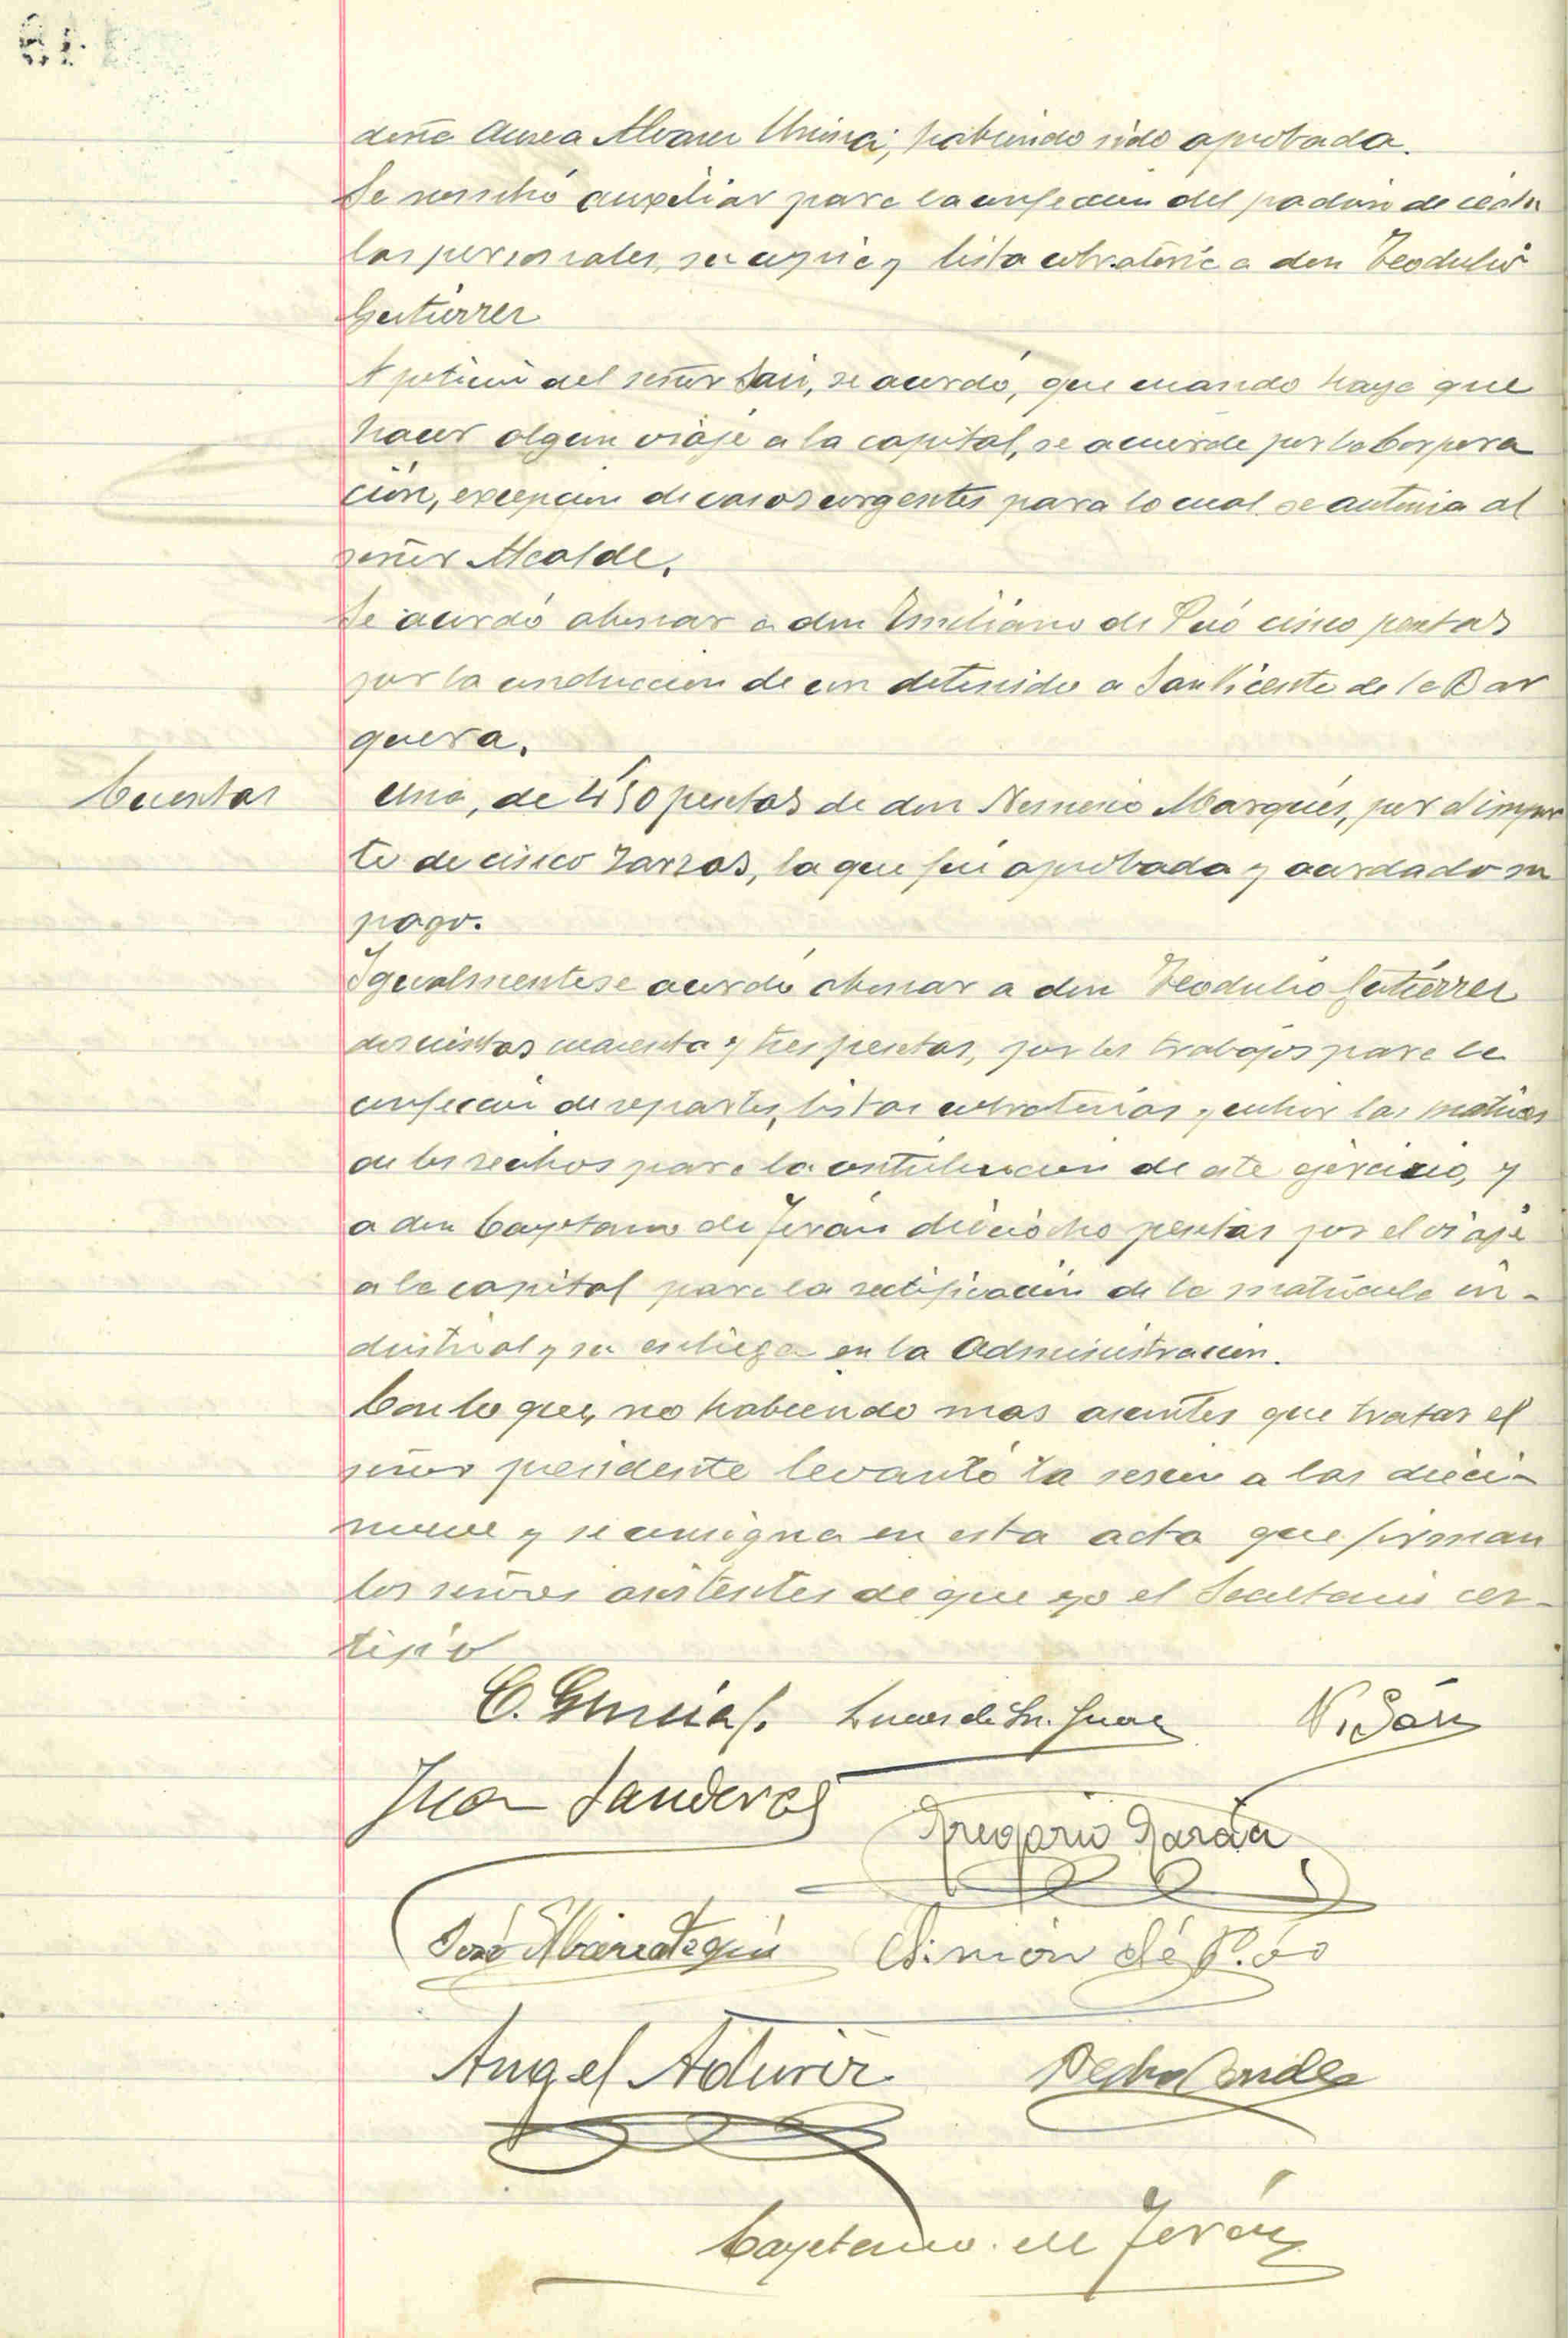 doña Aurea Alvarez, habiendo sido aprobada.
Se nombró auxiliar para la confección del padrón de cédu
las personales, su copia y lista cobratoria a don Teodulio
Gutierrez
A petición del señor San, se acordó, que cuando haya que
hacer algun viaje a la capital, se acuerde por la Corpora
ción, excepción de casos urgentes para lo cual se autoriza al
señor Alcalde.
Se acordó abonar a don Emiliano de Pió cinco pesetas
por la conducción de un detenido a San Vicente de la Bar
quera.
Cuentas
Una, de 4'50 pesetas de don Nemesio Marqués, por el impor
te de cinco zarzos, la que fué aprobada y acordado su
pago.
Igualmente se acordó abonar a don Teodulio Gutiérrez
doscientas cuarenta y tres pesetas, por los trabajos para la
confección de repartos, listas cobratorias y cubrir las matrices
de los recibos para la contribucion de este ejercicio, y
a don Cayetano de Terán dieciocho pesetas por el viaje
a la capital para la rectificación de la matrícula in-
dustrial y su entrega en la Administracion.
Con lo que, no habiendo mas asuntos que tratar el
señor presidente levantó la sesion a las dieci-
nueve y se consigna en esta acta que firman
los señores asistentes de que yo el Secretario cer-
tifico
Lucas de Sn. Juan N. Sán
Juan Sanderas
Gregorio García
José Simón de Pió
Angel Aduriz Pedro Conde
Cayetano de Terán